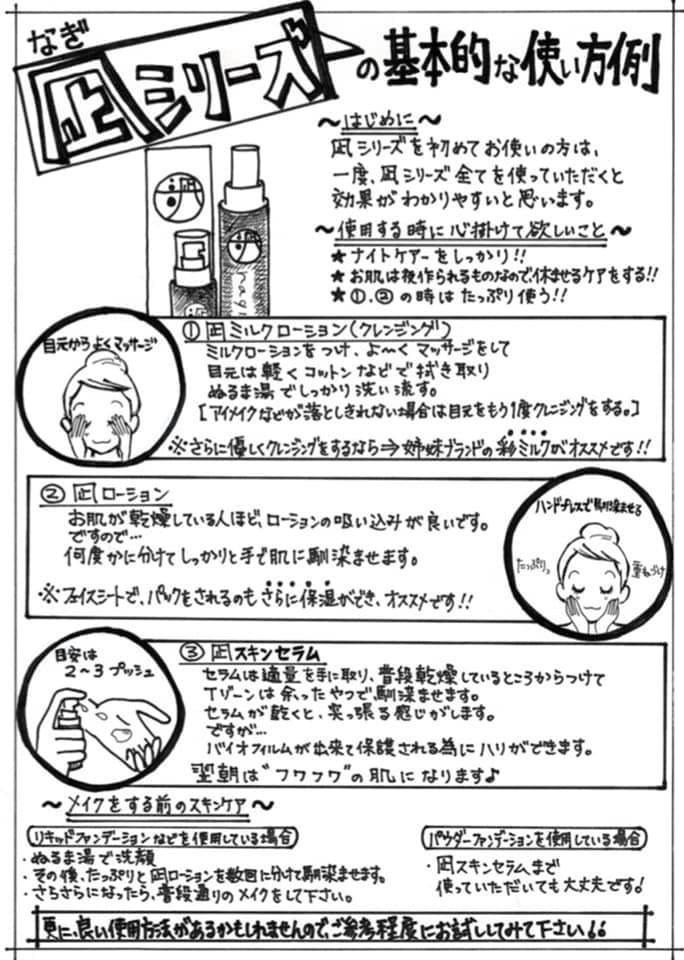 なぎ
凪シリーズの基本的な使い方例
〜はじめに〜
凪シリーズを初めてお使いの方は、
一度、凪シリーズ全てを使っていただくと
効果がわかりやすいと思います。
〜使用する時に心掛けて欲しいこと〜
★ナイトケアーをしっかり!!
★お肌は夜作られるものなので、休ませるケアをする!!
★①.②の時はたっぷり使う!!
凪
nagi
目元からよくマッサージ
①凪ミルクローション(クレンジング)
ミルクローションをつけ、よ〜くマッサージをして
目元は軽くコットンなどで拭き取り
ぬるま湯でしっかり洗い流す。
[アイメイクなどが落としきれない場合は目元をもう1度クレニジングをする。]
※さらに優しくクレンジングをするなら⇒姉妹ブランドの彩ミルクがオススメです!!
②凪ローション
お肌が乾燥している人ほど、ローションの吸い込みが良いです。
ですので…
何度かに分けてしっかりと手で肌に馴染ませます。
※フェイスシートで、パックをされるのもさらに保湿ができ、オススメです!!
ハンドプレスで馴染ませる
たっぷりっ
重ねづけ
目安は
2〜3プッシュ
③凪スキンセラム
セラムは適量を手に取り、普段乾燥しているところからつけて
Tゾーンは余ったやつで馴染ませます。
セラムが乾くと、突っ張る感じがします。
ですが…
バイオフィルムが出来て保護される為にハリができます。
翌朝は"フワフワ"の肌になります♪
〜メイクをする前のスキンケア〜
リキッドファンデーションなどを使用している場合
・ぬるま湯で洗顔
・その後、たっぷりと凪ローションを数回に分けて馴染ませます。
・さらさらになったら、普段通りのメイクをして下さい。
パウダーファンデーションを使用している場合
・凪スキンセラムまで
使っていただいても大丈夫です!
更に、良い使用方法があるかもしれませんので、ご参考程度にお試ししてみて下さい